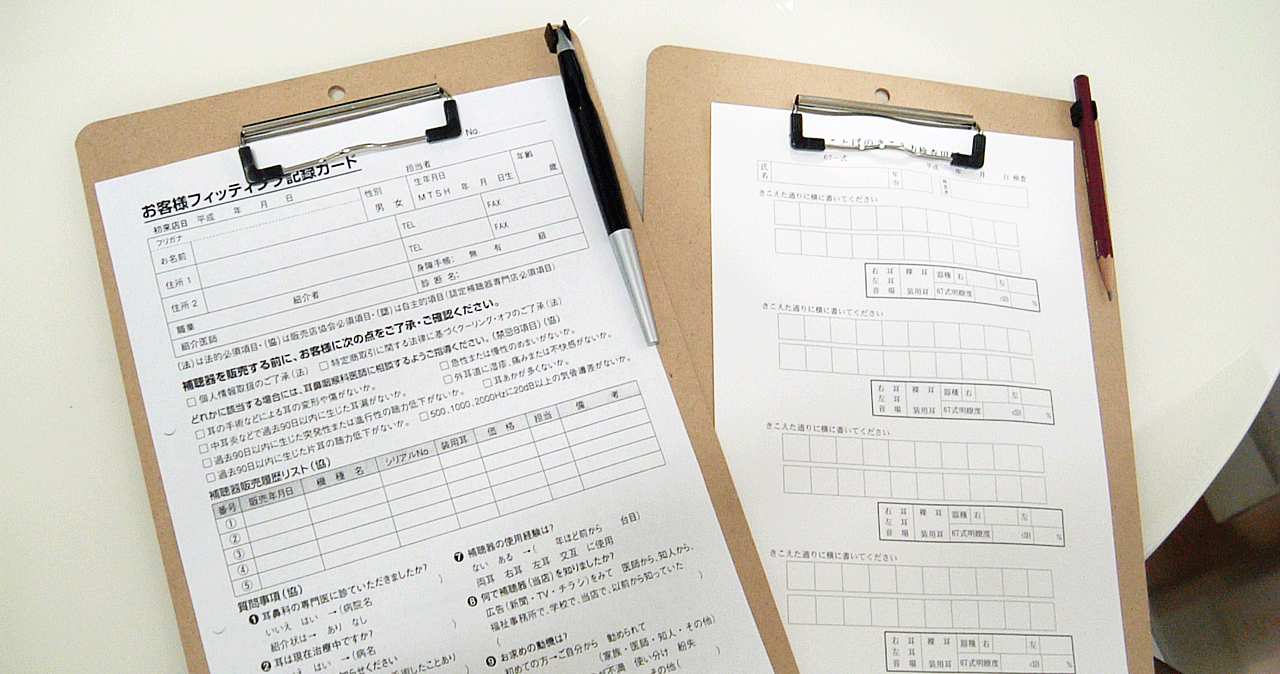 No.
お客様フィッティング記録カード
担当者
初来店日 平成 年 月 日
性別 生年月日 年齢
フリガナ
男 女 M T S H 年 月 日生 歳
お名前
TEL FAX
住所 1
TEL FAX
住所 2
身障手帳: 無 有 級
紹介者
診 断 名:
職業
紹介医師
(法)は法的必須項目・(協)は販売店協会必須項目・(認)は自主的項目(認定補聴器専門店必須項目)
補聴器を販売する前に、お客様に次の点をご了承・ご確認ください。
□ 個人情報取扱のご了承(法) □ 特定商取引に関する法律に基づくクーリング・オフのご了承(法)
どれかに該当する場合には、耳鼻咽喉科医師に相談するようご指導ください。(禁忌8項目)(協)
□ 耳の手術などによる耳の変形や傷がないか。 □ 急性または慢性のめまいがないか。
□ 中耳炎などで過去90日以内に生じた耳漏がないか。 □ 外耳道に湿疹、痛みまたは不快感がないか。
□ 過去90日以内に生じた突発性または進行性の聴力低下がないか。 □ 耳あかが多くないか。
□ 過去90日以内に生じた片耳の聴力低下がないか。 □ 500、1000、2000Hzに20dB以上の気骨導差がないか。
補聴器販売履歴リスト(協)
番号 販売年月日 機 種 名 シリアルNo 装用耳 価 格 担当 備 考
①
②
③
④
⑤
質問事項(協)
❶ 耳鼻科の専門医に診ていただきましたか?
いいえ はい →(病院名 )
紹介状は→ あり なし
❷ 耳は現在治療中ですか?
はい →(病名 )
❼ 補聴器の使用経験は?
ない ある →( 年ほど前から 台目)
両耳 右耳 左耳 交互 に使用
❽ 何で補聴器(当店)を知りましたか?
広告(新聞・TV・チラシ)をみて 医師から、知人から、
福祉事務所で、学校で、当店で、以前から知っていた
( )
❾ お求めの動機は?
初めての方→ご自分から 勧められて
(家族・医師・知人・その他)
が不満 使い分け 紛失
その他( )
67-式
平成 年 月 日 検査
氏名 年令 検査者
きこえた通りに横に書いてください
右 耳 裸 耳 器種 右 左
左 耳
音 場 装用耳 67式明瞭度 dB %
きこえた通りに横に書いてください
右 耳 裸 耳 器種 右 左
左 耳
音 場 装用耳 67式明瞭度 dB %
きこえた通りに横に書いてください
右 耳 裸 耳 器種 右 左
左 耳
音 場 装用耳 67式明瞭度 dB %
きこえた通りに横に書いてください
右 耳 裸 耳 器種 右 左
左 耳
音 場 装用耳 67式明瞭度 dB %